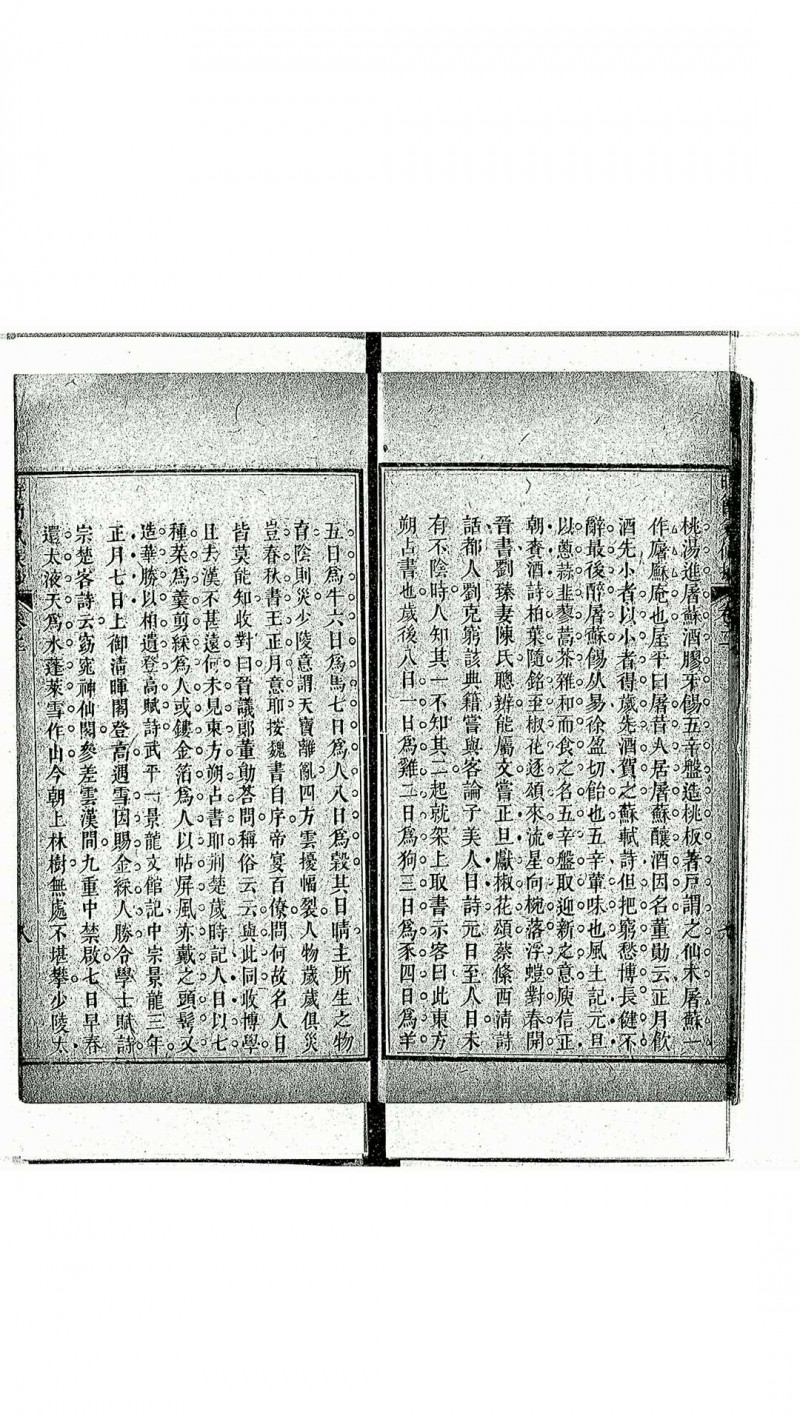 桃湯進屠蘇酒膠牙餳五辛盤造桃板著戸謂之仙木屠蘇一
作廜㢝庵也屋平曰屠昔人居屠蘇釀酒因名董勛云正月飮
酒先小者以小者得歲先酒賀之蘇軾詩但把窮愁博長健不
辭最後醉屠蘇餳从易徐盈切飴也五辛葷味也風土記元旦
以蔥蒜韭蓼蒿芥雜和而食之名五辛盤取迎新之意庾信正
朝賚酒詩柏葉隨銘至椒花逐頌來流星向椀落浮螘對春開
晉書劉臻妻陳氏聰辨能屬文嘗正旦獻椒花頌蔡絛西淸詩
話都人劉克窮該典籍嘗與客論子美人日詩元日至人日未
有不陰時人知其一不知其二起就架上取書示客曰此東方
朔占書也歲後八日一日爲雞二日爲狗三日爲豕四日爲羊
五日爲牛六日爲馬七日爲人八日爲穀其日晴主所生之物
育陰則災少陵意謂天寶離亂四方雲擾幅裂人物歲歲俱災
豈春秋書王正月意耶按魏書自序帝宴百僚問何故名人日
皆莫能知收對曰晉議郞董勛荅問稱俗云云與此同收博學
且去漢不甚遠何未見東方朔占書耶荆楚歲時記人日以七
種菜爲羹剪綵爲人或鏤金箔爲人以帖屏風亦戴之頭鬢又
造華勝以相遺登高賦詩武平一景龍文館記中宗景龍三年
正月七日上御淸暉閣登高遇雪因賜金綵人勝令學士賦詩
宗楚客詩云窈窕神仙閣參差雲漢間九重中禁啟七日早春
還太液天爲水蓬萊雪作山今朝上林樹無處不堪攀少陵太